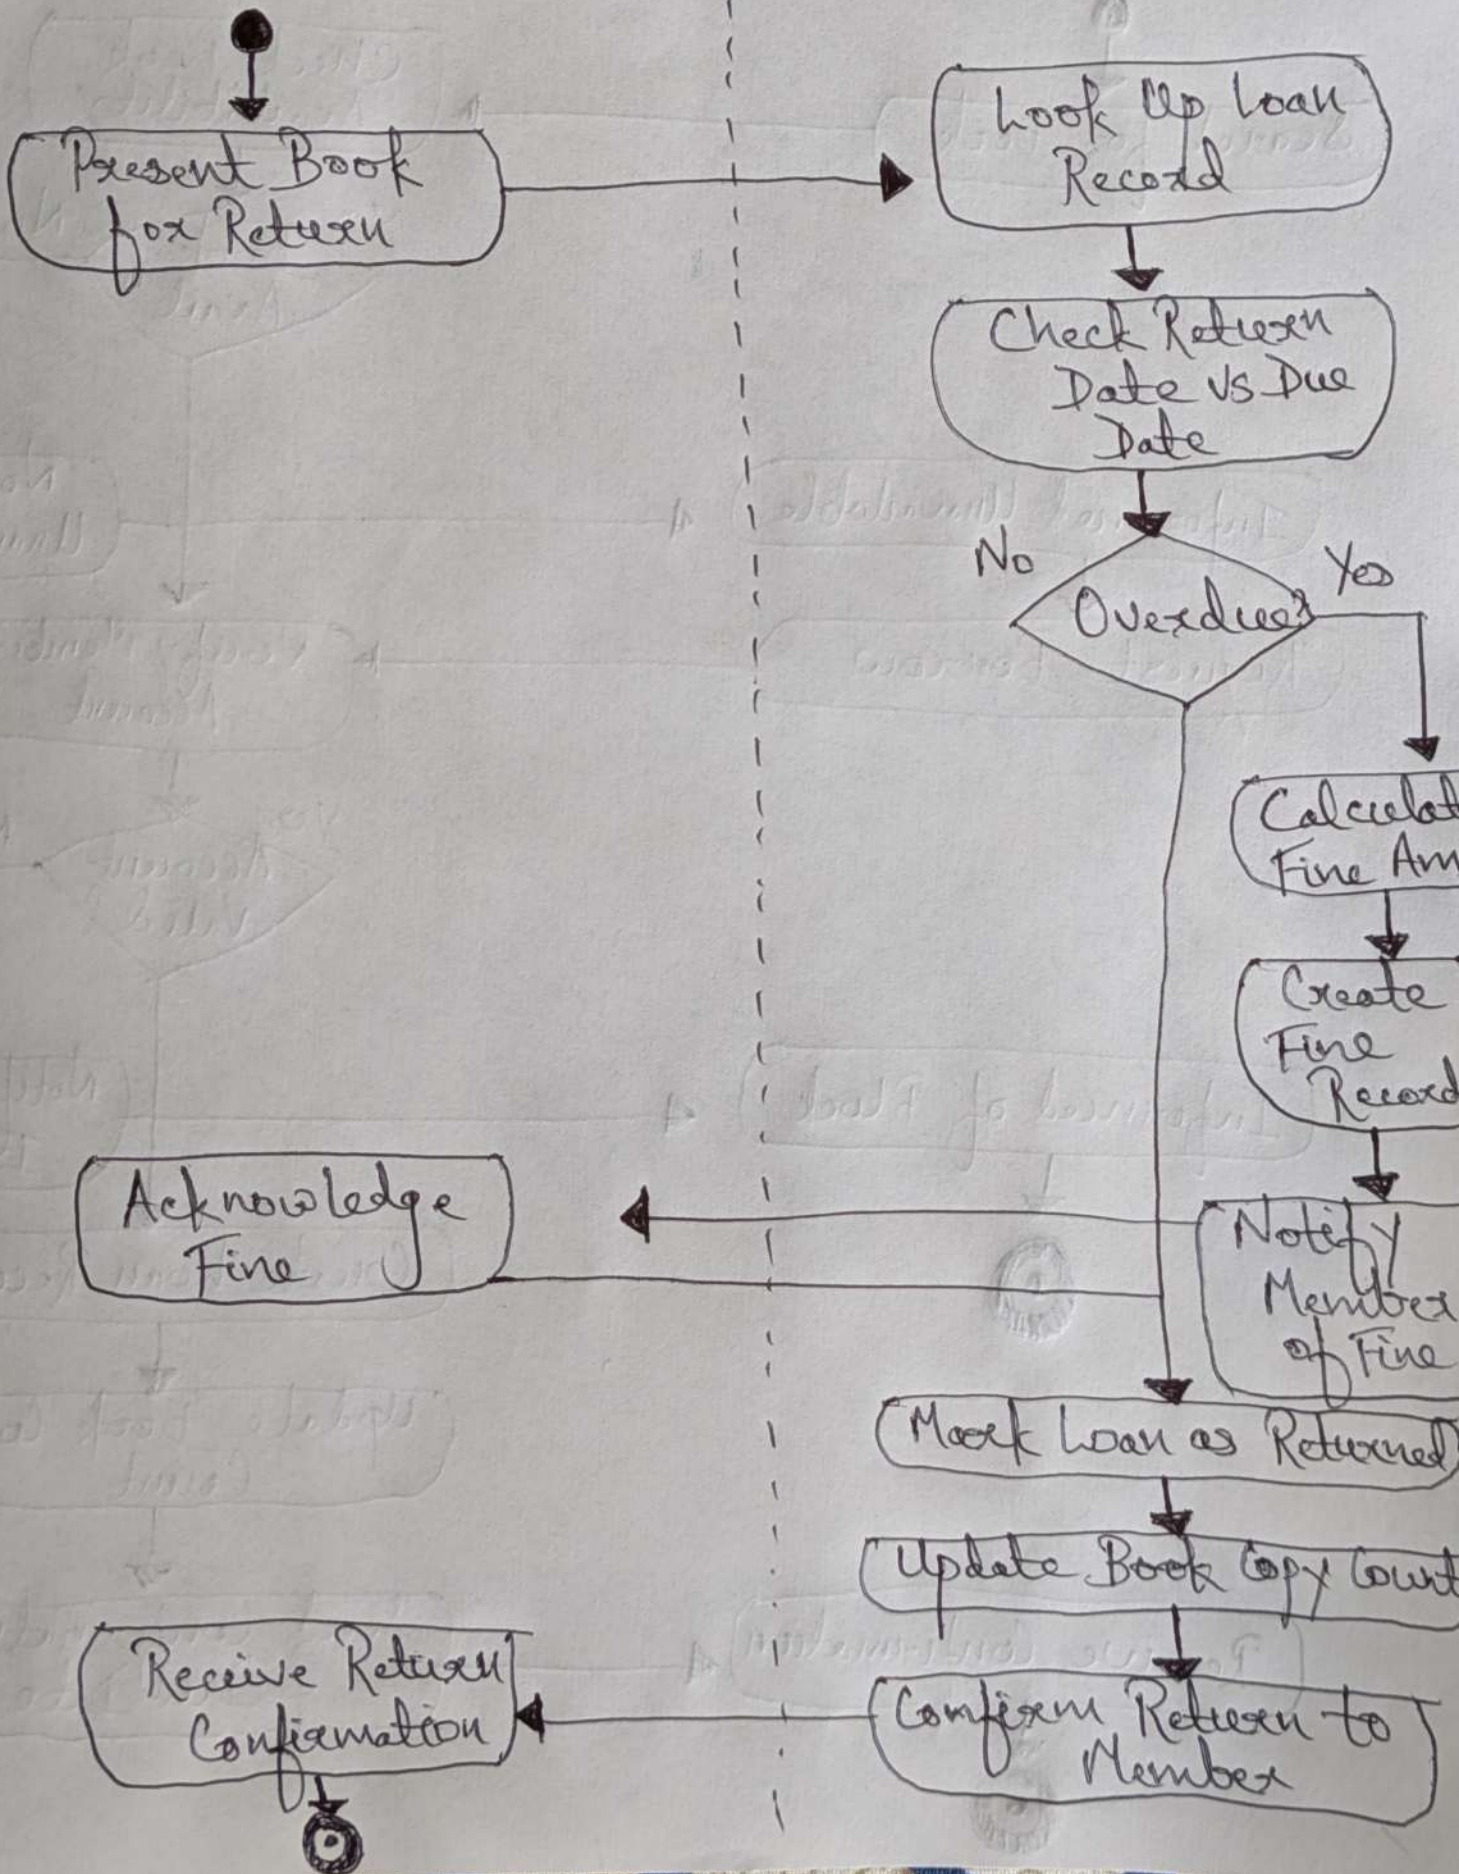 Present Book
for Return
Look Up Loan
Record
Check Return
Date vs Due
Date
No
Yes
Overdue?
Calculat
Fine Am
Create
Fine
Record
Acknowledge
Fine
Notify
Member
of Fine
Mark Loan as Returned
Update Book Copy Count
Receive Return
Confirmation
Confirm Return to
Member